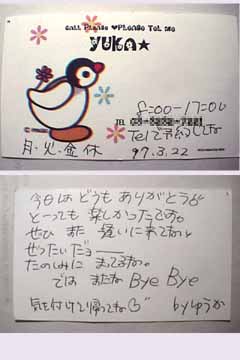 CALL PLEASE ♥PLEASE TEL ME
YUKA★
8:00-17:00
TEL
Telで予約してね
月・火・金休
97.3.22
今日は どうも ありがとう
とっても 楽しかったです。
ぜひ また 遊びに来てねっ
ぜったいだョー
たのしみに まってるね。
では またね Bye Bye
気を付けて帰ってね
byゆうか